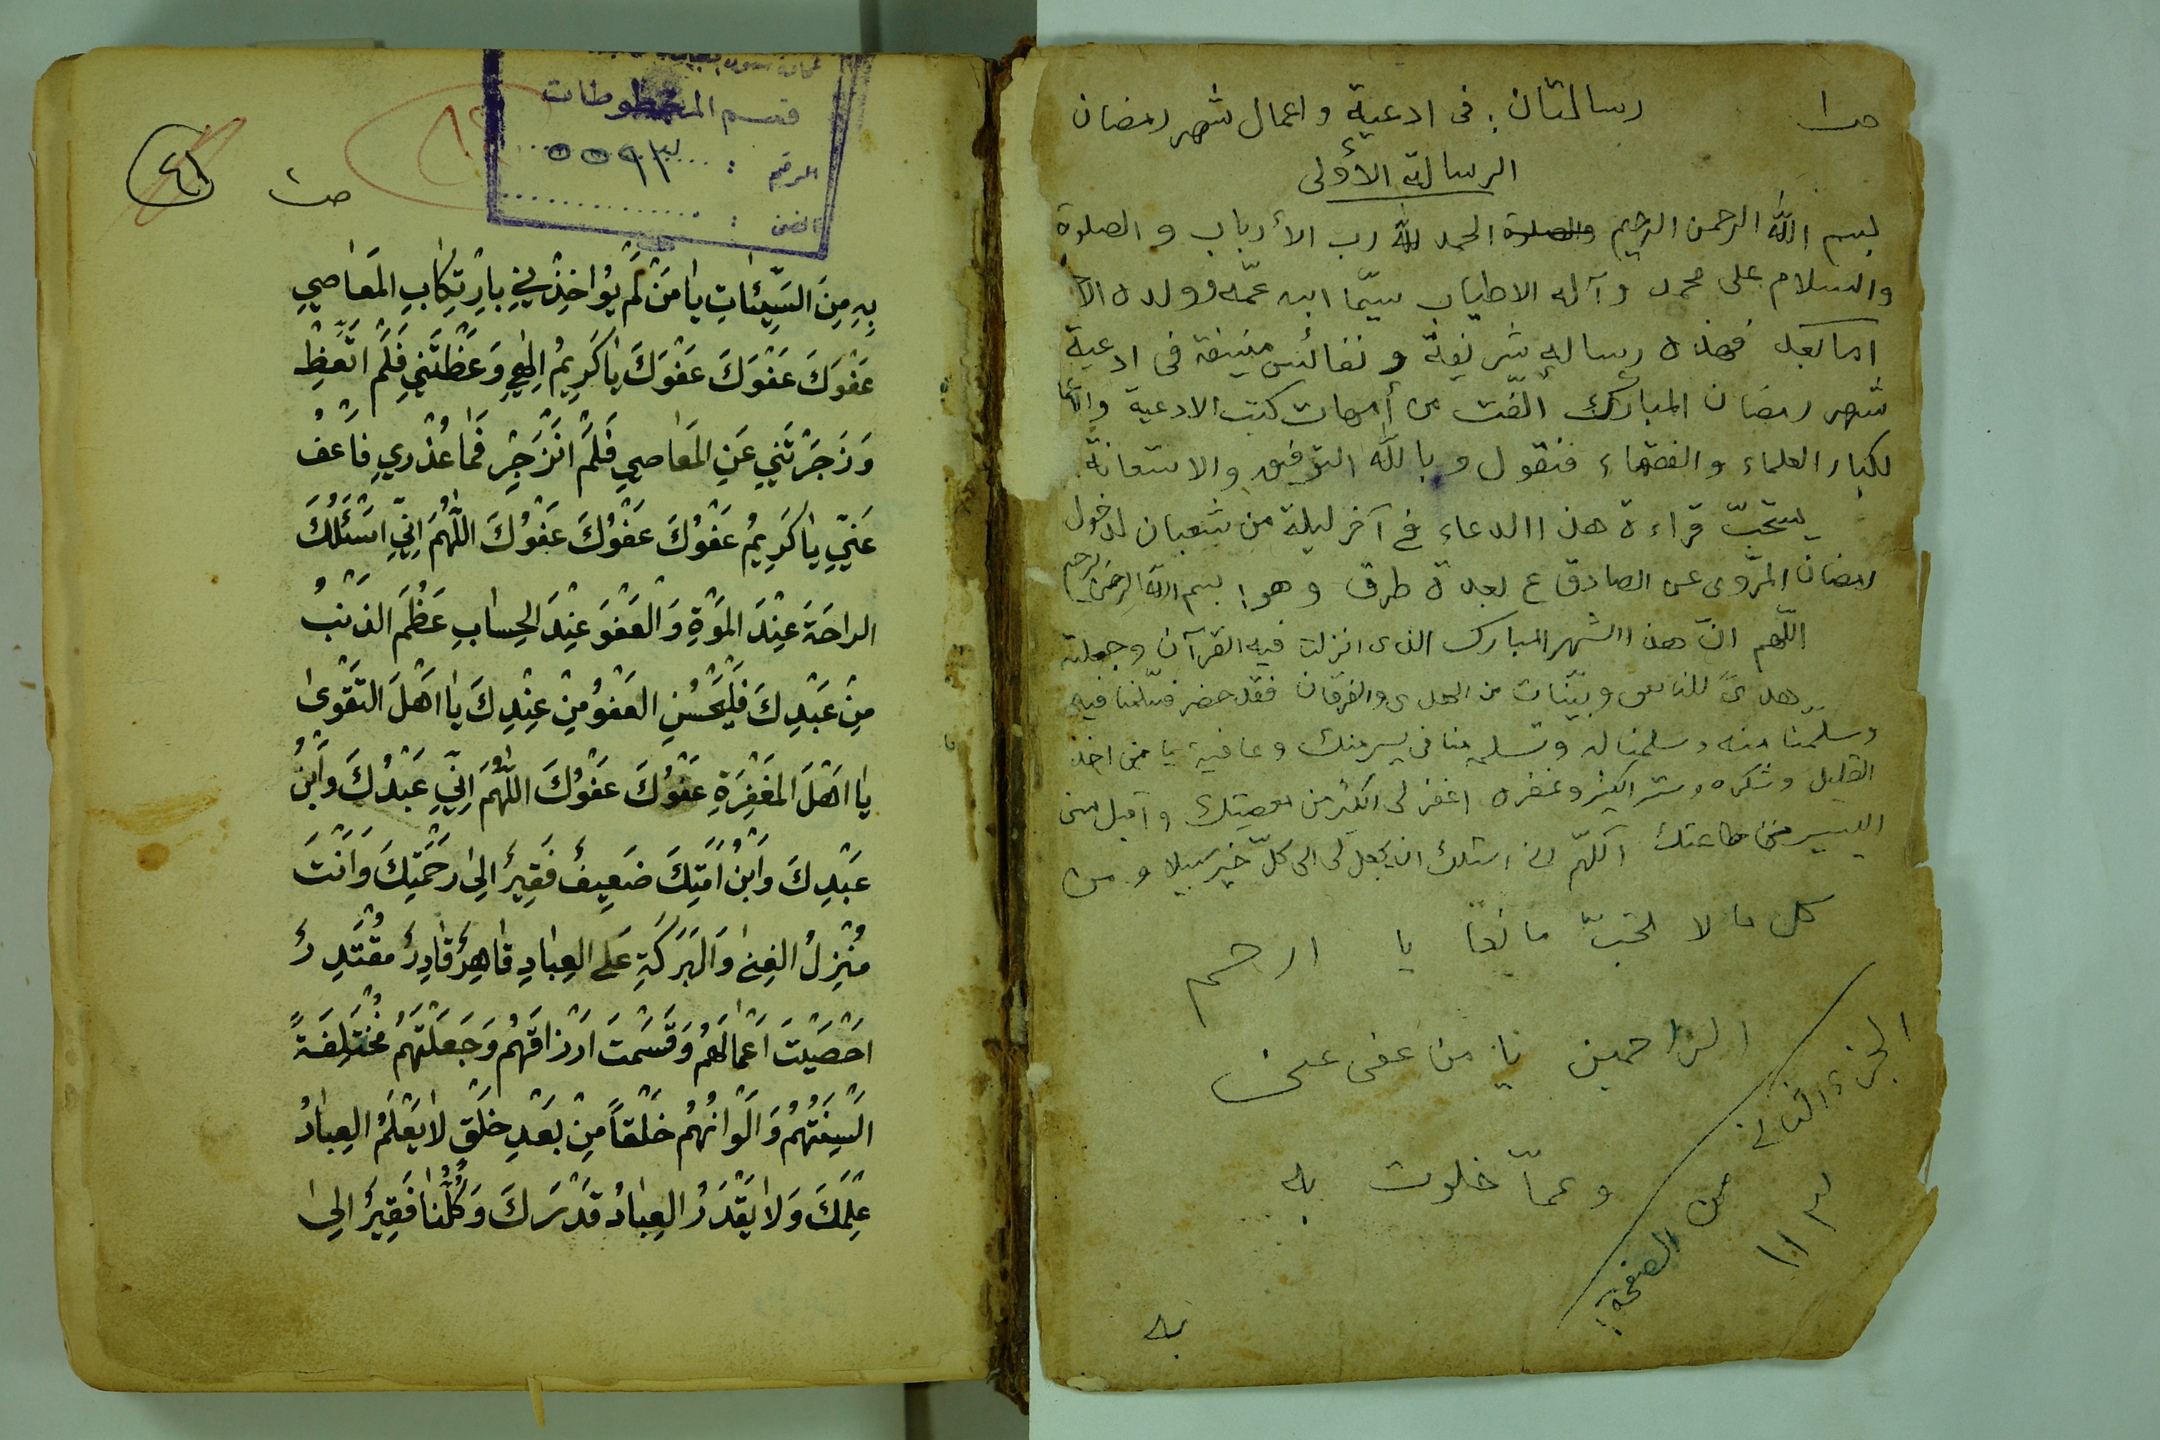 ص١
رسالتان: فى ادعية و اعمال شهر رمضان
الرسالة الأولى
بسم الله الرحمن الرحيم والصلوة الحمد لله رب الأرباب و الصلوة
والسلام على محمد و آله الاطياب سيّما ابن عمّه وولده الا
اما بعد فهذه رساله شريفة و نفائس منيفة فى ادعية
شهر رمضان المبارك ألّفت من أمهات كتب الادعية
لكبار العلماء والفقهاء فنقول و بالله التوفيق والاستعانة
يستحبّ قراءة هذا الدعاء في آخر ليلة من شعبان لدخول
رمضان المروى عن الصادق ع بعدة طرق و هو: بسم الله الرحمن الرحيم
اللّهم انّ هذا الشهر المبارك الذى انزلت فيه القرآن وجعلته
هدىً للناس وبيّنات من الهدى والفرقان فقد حضر فسلّمنا فيه
وسلمنا منه وسلمنا له وتسلمه منا فى يسر منك وعافية يا من اخذ
القليل وشكره وستر الكثير وغفره اغفر لى الكثير من معصيتك واقبل منى
اليسير من طاعتك اللّهم انى اسئلك ان تجعل لى الى كلّ خير سبيلا ومن
كل ما لا تحبّ مانعا يا ارحم
الراحمين يا من عفى عنى
وعمّا خلوت به
به
الجزء الثانى
من الصفحة
١١٣
قسم المخطوطات
الرقم :
الفن :
٤١
ص٢
بِهِ مِنَ السَّيِّئاتِ يا مَنْ لَمْ يُؤاخِذْني بِارْتِكابِ المَعاصِي
عَفْوَكَ عَفْوَكَ عَفْوَكَ يا كَرِيمُ اِلهي وَعَظْتَني فَلَم اتَّعِظْ
وَزَجَرْتَني عَنِ المَعاصي فَلَمْ انْزَجِرْ فَما عُذْري فَاعْفُ
عَنّي يا كَرِيمُ عَفْوُكَ عَفْوُكَ عَفْوُكَ اللّهُمَ اِنّي اسْئَلُكَ
الراحَةَ عِنْدَ المَوْةِ وَالْعَفْوَ عِنْدَ الحِسابِ عَظُمَ الذَنْبُ
مِنْ عَبْدِكَ فَلْيَحْسُنِ العَفْوُ مِنْ عِنْدِكَ يا اهْلَ التَقْوى
يا اهْلَ المَغْفِرَةِ عَفْوُكَ عَفْوُكَ اللّهُمَ اِنّي عَبْدُكَ وَابْنُ
عَبْدِكَ وَابْنُ اَمَتِكَ ضَعِيفٌ فَقِيرٌ اِلى رَحْمَتِكَ وَانْتَ
مُنْزِلُ الغِنى وَالبَرَكَةِ عَلى العِبادِ قاهِرٌ قادِرٌ مُقْتَدِرٌ
احْصَيْتَ اعْمالَهُم وَقَسَمْتَ ارْزاقَهُم وَجَعَلْتَهُم مُخْتَلِفَةً
الْسِنَتُهُم وَالْوانُهُم خَلْقاً مِنْ بَعْدِ خَلْقٍ لا يَعْلَمُ العِبادُ
عِلْمَكَ وَلا يَقْدَرُ العِبادُ قَدْرَكَ وَكُلُّنا فَقِيرٌ اِلى